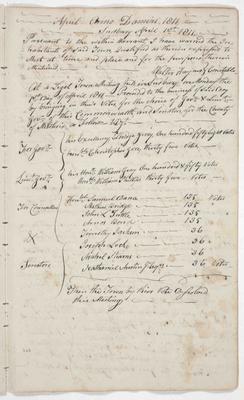 April Anno Domini, 1811
Sudbury April 1st 1811
Pursuant to the within Warrant I have warned the In-
habitants of said Town Qualified as therein expressed to
Meet at time and place and for the purpose therein
Mentioned. Constable
At a Legal Town Meeting held in Sudbury on Monday the
1st Day of April 1811. Proceeded to
by bringing in their Votes for the choice of Govr & Lieut
Govr of this Commonwealth and Senators for the County
of Middlesex
For Govr. his Excellency Elbridge Gerry One hundred fifty eight votes
Honble Christopher Gore thirty five votes
Lieut Govr. his Honr. William Gray One hundred & fifty Votes
Honble William Phillips thirty five Votes
For Counsellors Honble Samuel Dana 135 Votes
Matthew Bridge 135
John L. Tuttle 135
Amos Bond 135
Timothy Jackson 36
& Joseph Locke 36
36
Senators Nathaniel Austin Jr Esqr 36 Votes
Then the Town by their Vote Dissolved
this Meeting